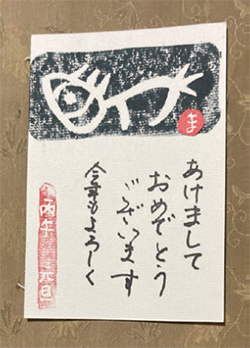 あけまして
おめでとう
ございます
今年もよろしく
丙午 元旦